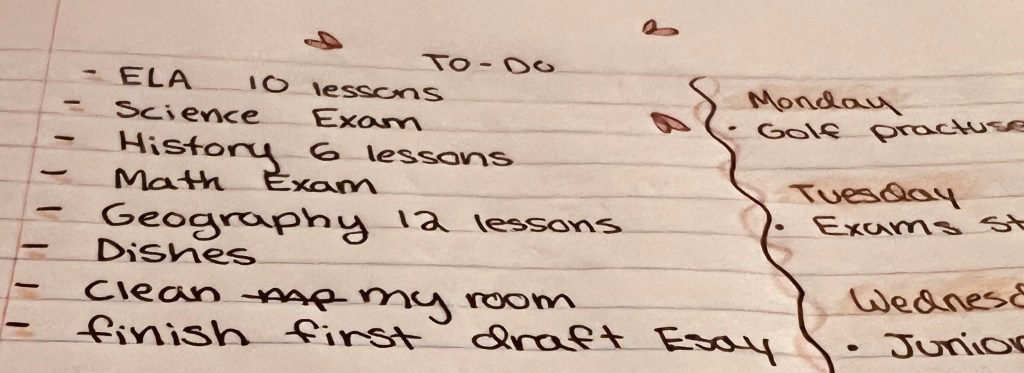 TO-DO
- ELA 10 lessons
- Science Exam
- History 6 lessons
- Math Exam
- Geography 12 lessons
- Dishes
- Clean my room
- finish first draft Esay
Monday
· Golf practuse
Tuesday
· Exams st
Wednesd
· Junior